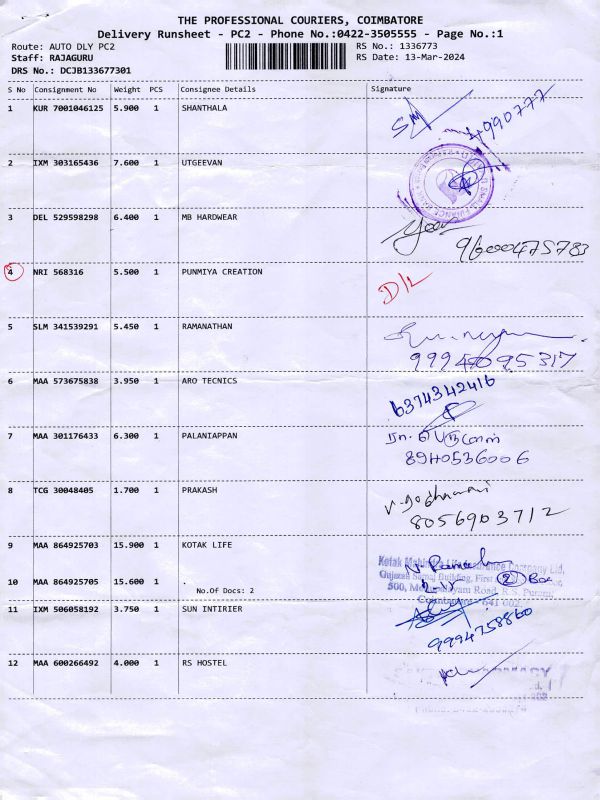 THE PROFESSIONAL COURIERS, COIMBATORE
Delivery Runsheet - PC2 - Phone No.:0422-3505555 - Page No.:1
Route: AUTO DLY PC2 RS No.: 1336773
Staff: RAJAGURU RS Date: 13-Mar-2024
DRS No.: DCJB133677301
S No Consignment No Weight PCS Consignee Details Signature
1 KUR 7001046125 5.900 1 SHANTHALA
2 IXM 303165436 7.600 1 UTGEEVAN
3 DEL 529598298 6.400 1 MB HARDWEAR
9600475783
4 NRI 568316 5.500 1 PUNMIYA CREATION
D/L
5 SLM 341539291 5.450 1 RAMANATHAN
9994095317
6 MAA 573675838 3.950 1 ARO TECNICS
6374342416
7 MAA 301176433 6.300 1 PALANIAPPAN
8940536006
8 TCG 30048405 1.700 1 PRAKASH
8056903712
9 MAA 864925703 15.900 1 KOTAK LIFE
Kotak Mahindra Life Insurance Company Ltd,
Gujarati Samaj Building, First
10 MAA 864925705 15.600 1 .
2 Box
No.Of Docs: 2
500, Mettupalayam Road, R.S. Puram,
Coimbatore - 641 002
11 IXM 506058192 3.750 1 SUN INTIRIER
9994758860
12 MAA 600266492 4.000 1 RS HOSTEL